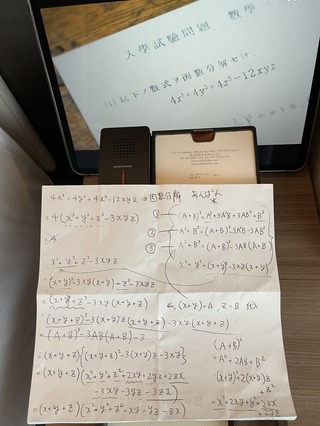 入學試驗問題 數學
(1) 以下ノ数式ヲ因数分解セヨ.
4x³+4y³+4z³-12xyz
4x³+4y³+4z³-12xyz の因数分解
=4(x³+y³+z³-3xyz)
① (A+B)³=A³+3A²B+3AB²+B³
② A³+B³=(A+B)³-3A²B-3AB²
③ A³+B³=(A+B)³-3AB(A+B)
x³+y³=(x+y)³-3xy(x+y)
x³+y³+z³-3xyz
=(x+y)³-3xy(x+y)+z³-3xyz
=(x+y)³+z³-3xy(x+y+z)
(x+y)=A, z=B 代入
=(x+y+z)³-3(x+y)z(x+y+z)-3xy(x+y+z)
=(A+B)³-3AB(A+B)-3
=(x+y+z){(x+y+z)²-3(x+y)z-3xy}
=(x+y+z)(x²+y²+z²+2xy+2yz+2zx
-3xy-3yz-3zx)
=(x+y+z)(x²+y²+z²-xy-yz-zx)
(A+B)²
=A²+2AB+B²
(x+y)²+2(x+y)z
+z²
=x²+2xy+y²+2zx
+2yz